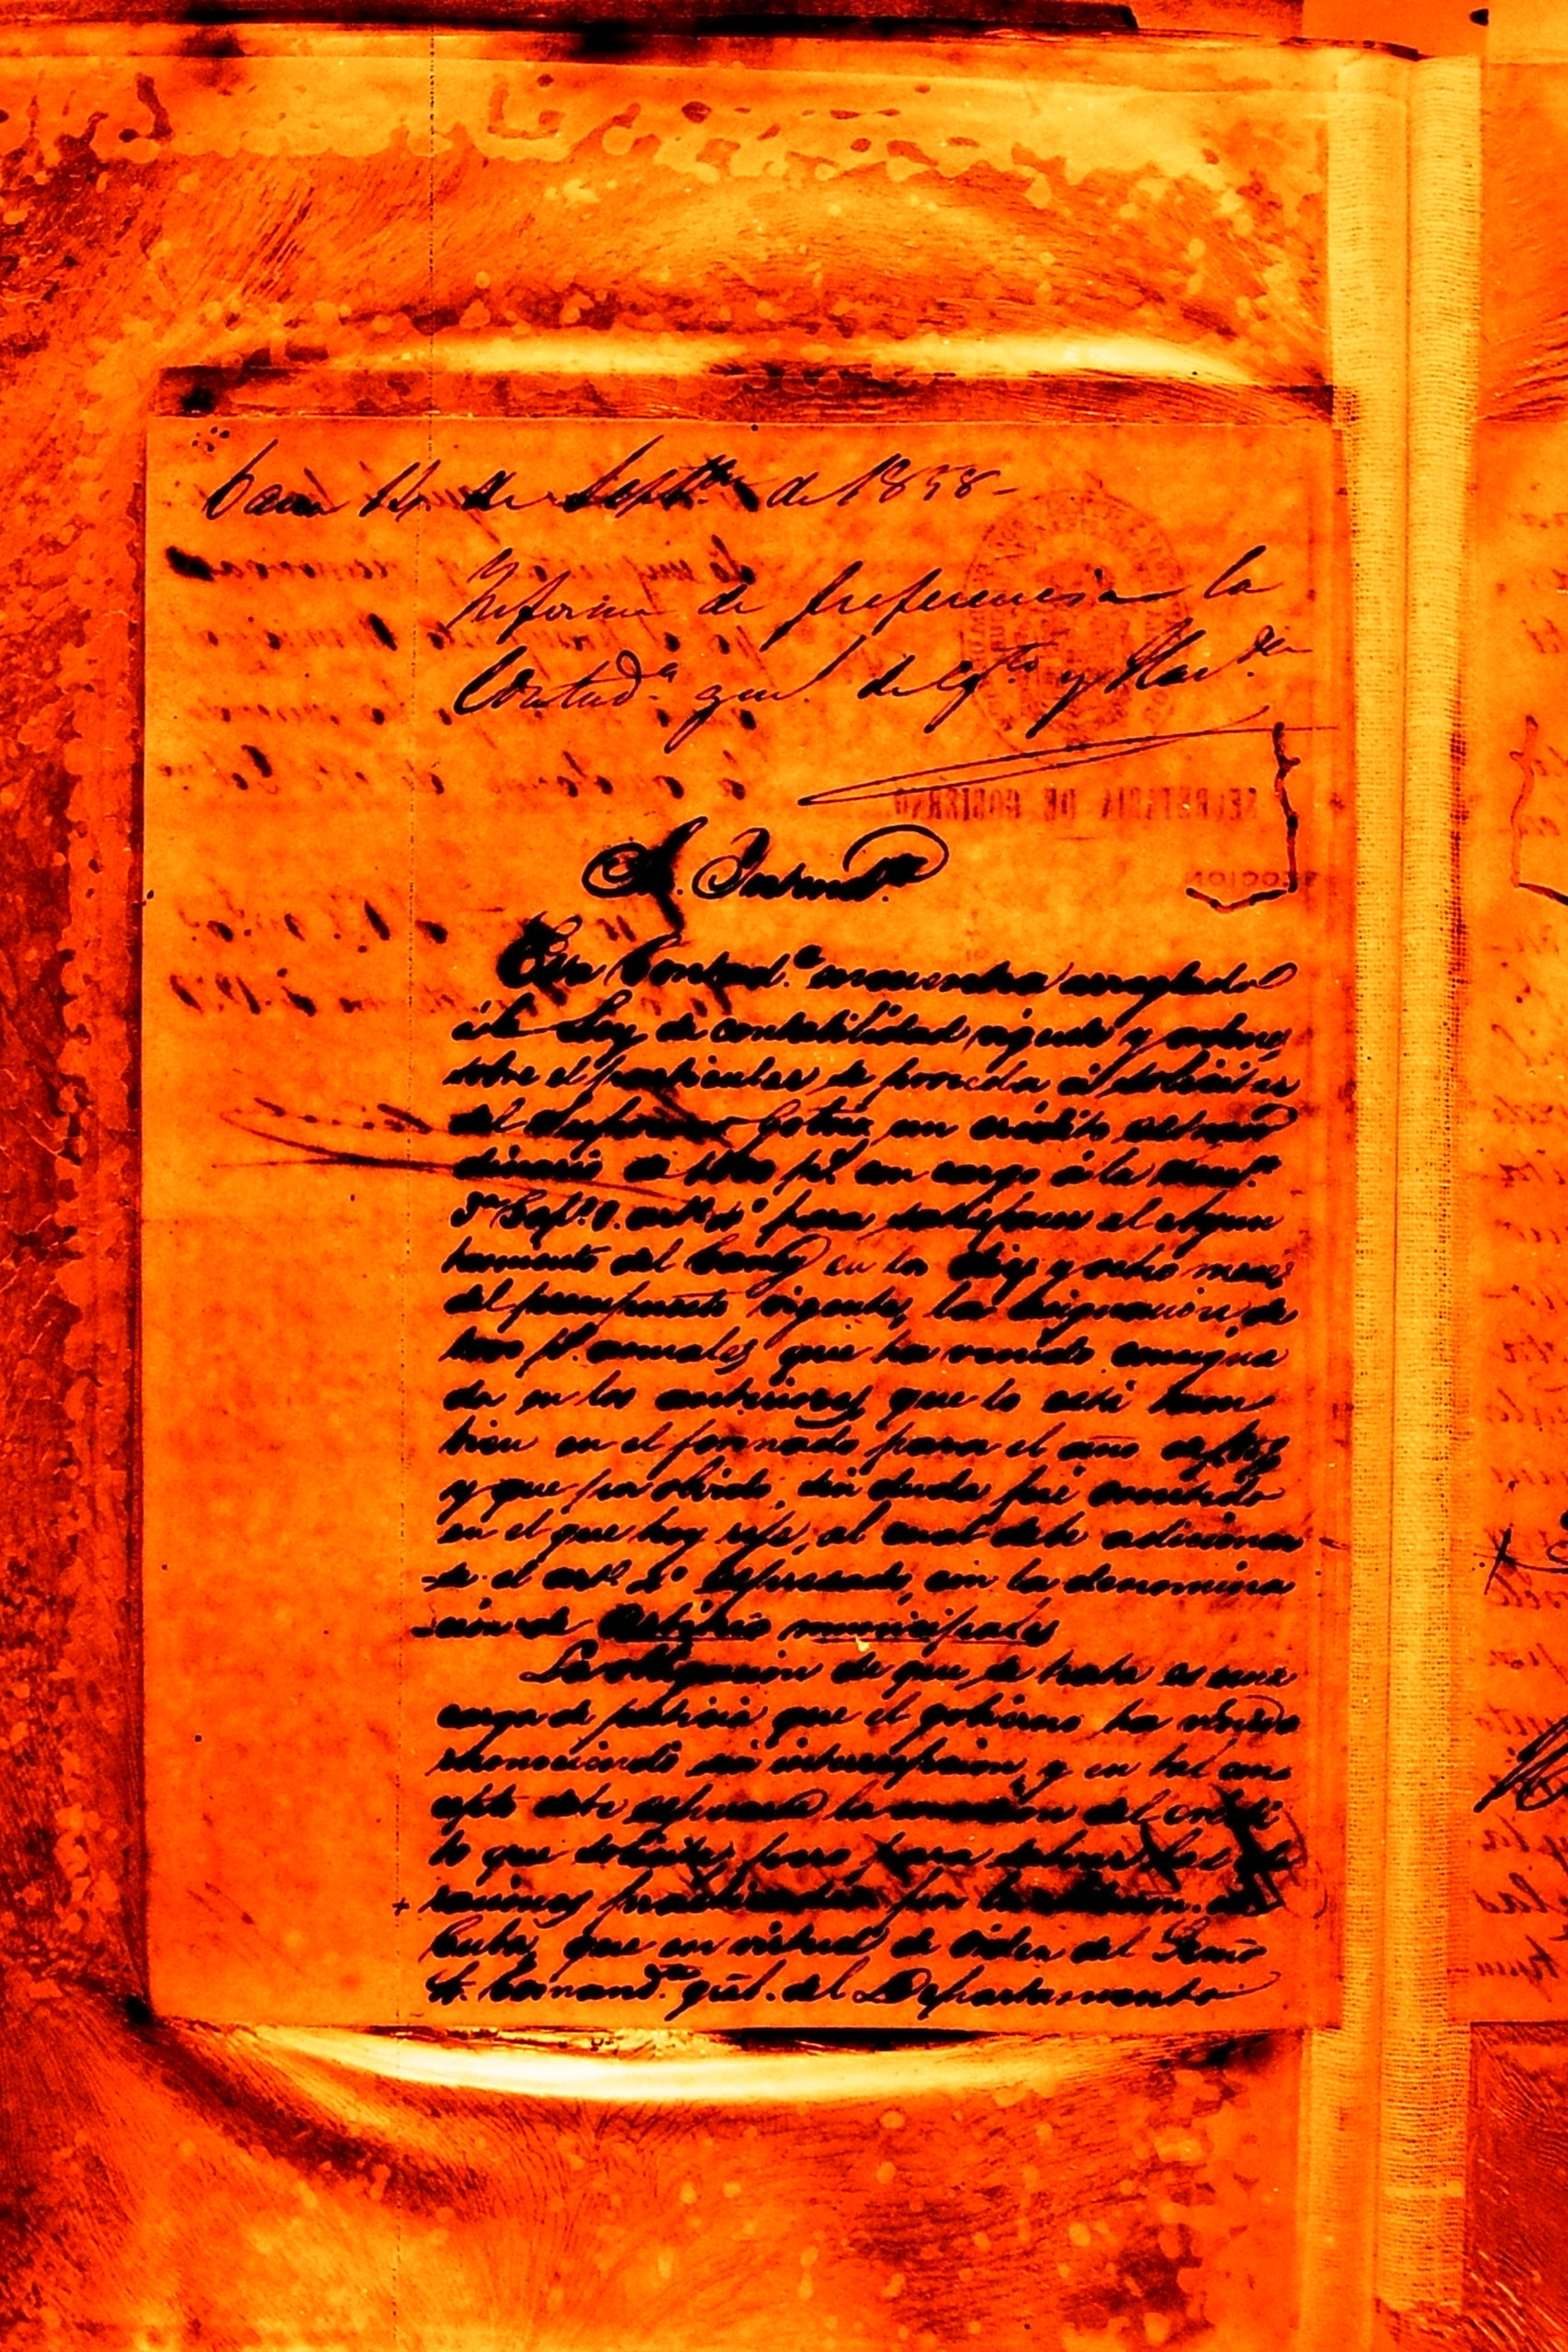 de Septbre de 1858-
Informe de preferencia la
Contadª gral. de Egto y Hacda
Sr. Intendte
Esta Contadª encuentra arreglado
á la Ley de contabilidad vigente y ordenes
sobre el particular se proceda á solicitar
del Supremo Gobno un crédito estraor
dinario de ps. con cargo á la
para satisfacer el
tamiento del en los diez y ocho meses
del presupuesto vigente, la asignacion de
ps. anuales que ha venido consigna
da en los anteriores que lo está tam
bien en el formado para el año de
y que por olvido, sin duda fué omitido
en el que hoy rije, al cual debe adicionar
se el artº 2º espresado, con la denomina
cion de Arbitrios municipales
La obligacion de que se trata es una
carga de justicia que el gobierno ha venido
reconociendo sin interrupcion, y en tal con
cepto debe esperarse la concesion del crédi
to que solicita, pero para
raciones practicadas por la
Cuba, que en virtud de orden del Excmo
Sr. Comandte gral. del Departamento
SECRETARIA DE GOBIERNO